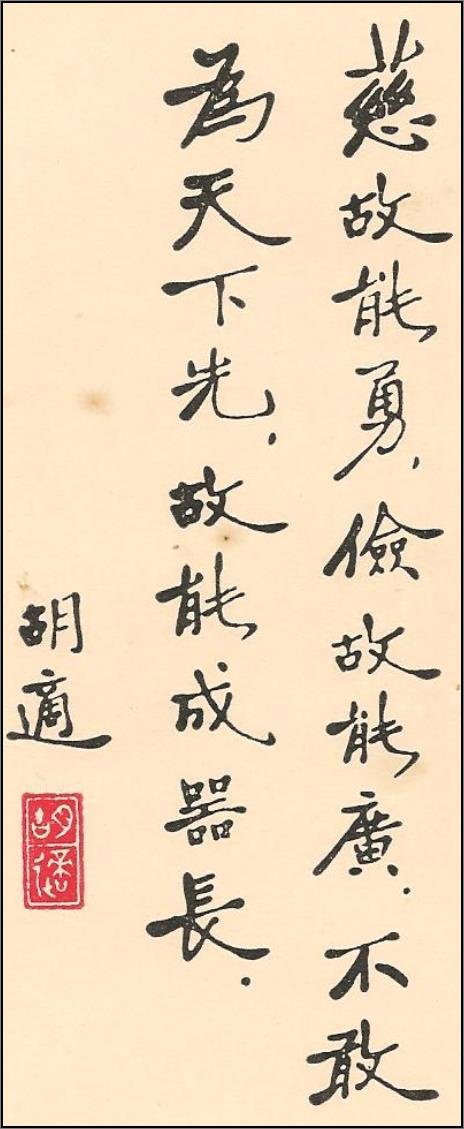 慈故能勇，儉故能廣．不敢
為天下先，故能成器長．
胡適
胡適